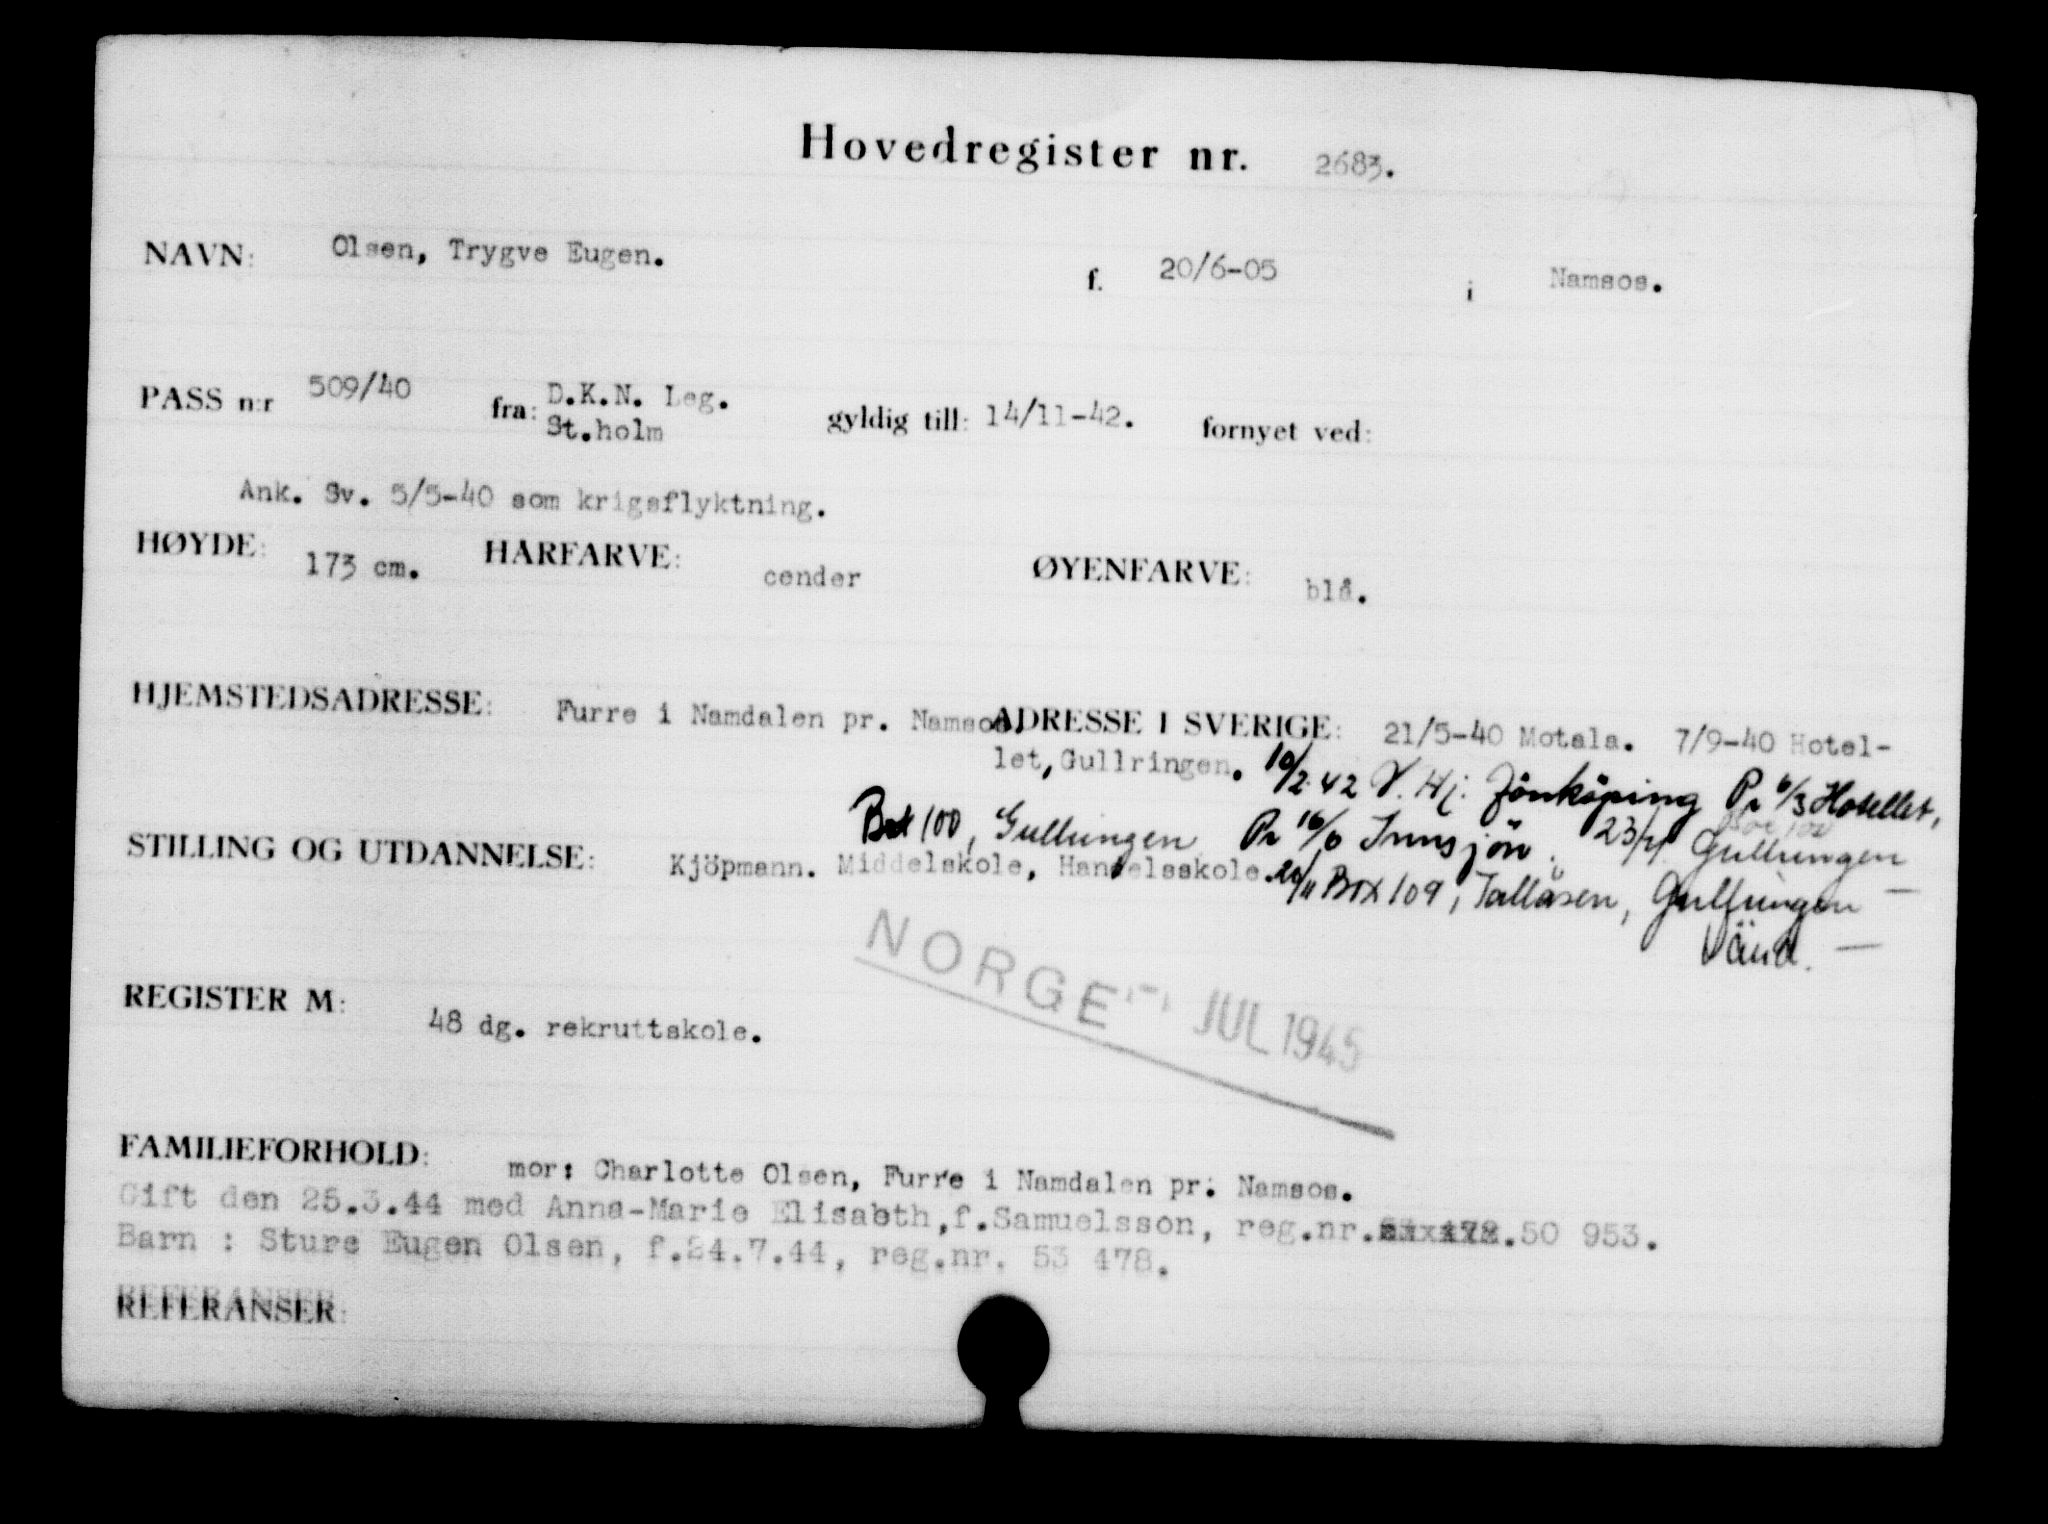 Hovedregister nr. 2683.
NAVN: Olsen, Trygve Eugen. f. 20/6-05 i Namsos.
PASS n:r 509/40 fra: D.K.N. Leg. St.holm gyldig till: 14/11-42. fornyet ved:
Ank. Sv. 5/5-40 som krigsflyktning.
HØYDE: 173 cm. HÅRFARVE: cender ØYENFARVE: blå.
HJEMSTEDSADRESSE: Furre i Namdalen pr. Namsos. ADRESSE I SVERIGE: 21/5-40 Motala. 7/9-40 Hotel-
let, Gullringen. 10/2.42 V. Hj. Jönköping Pr 6/3 Hotellet,
Box 100, Gullringen Pr 16/6 Innsjön. 23/4 Gullringen
STILLING OG UTDANNELSE: Kjöpmann. Middelskole, Handelsskole. 20/11 Box 109, Tallåsen, Gullringen —
Vänd. —
NORGE JUL 1945
REGISTER M: 48 dg. rekruttskole.
FAMILIEFORHOLD: mor: Charlotte Olsen, Furre i Namdalen pr. Namsos.
Gift den 25.3.44 med Anna-Marie Elisabth, f. Samuelsson, reg.nr. 50 953.
Barn : Sture Eugen Olsen, f.24.7.44, reg.nr. 53 478.
REFERANSER: